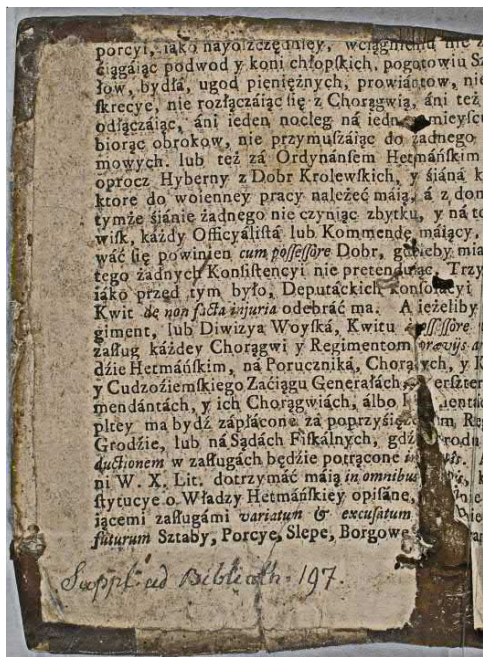 porcyi, iáko nayoszczędniey, wciągnieniu nie z
ćiągáiąc podwod y koni chłopſkich, pogotowiu Sz
łow, bydłá, ugod pieniężnych, prowiántow, nie
ſkrecye, nie rozłączáiąc ſię z Chorągwią, áni też
odłączáiąc, áni ieden nocleg ná iedn mieyſcu
biorąc obrokow, nie przymuſzáiąc do żadnego
mowych. lub też zá Ordynánſem Hetmáńſkim
oprocz Hyberny z Dobr Krolewſkich, y śiáná k
ktore do woienney pracy należeć máią, á z don
tymże śiánie żadnego nie czyniąc zbytku, y ná to
wiſk, káżdy Officyáliſtá lub Kommendę máiący,
wáć ſię powinien cum poſſeſſore Dobr, gdzieby mia
tego żadnych Konſiſtencyi nie pretenduiąc. Trzy
iáko przed tym było, Deputáckich Konſolacyi
Kwit de non facta injuria odebráć ma. A ieżeliby
giment, lub Diwizya Woyſká, Kwitu á poſſeſſore
záſług káżdey Chorągwi y Regimentom prævijs a
dźie Hetmáńſkim, ná Poruczniká, Chorążych, y K
y Cudzoźiemſkiego Záćiągu Generałách, erſzter
mendántách, y ich Chorągwiách, álbo mentá
pltey ma bydź zápłácone zá poprzyśię m Re
Grodźie, lub ná Sądách Fiſkálnych, gdź rodu
ductionem w záſługách będźie potrącone in
ni W. X. Lit. dotrzymáć máią in omnibus k
ſtytucye o Władzy Hetmáńſkiey opiſáne, nie
iącemi záſługámi variatum & excuſatum ie
futurum Sztáby, Porcye, Slepe, Borgowe
Suppl. ad Biblioth. 197.